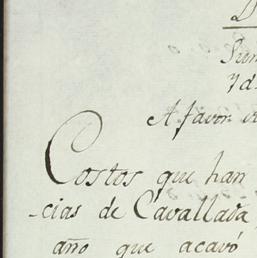 A favor
Costos que han
-cias de Cavallada
año que acavó